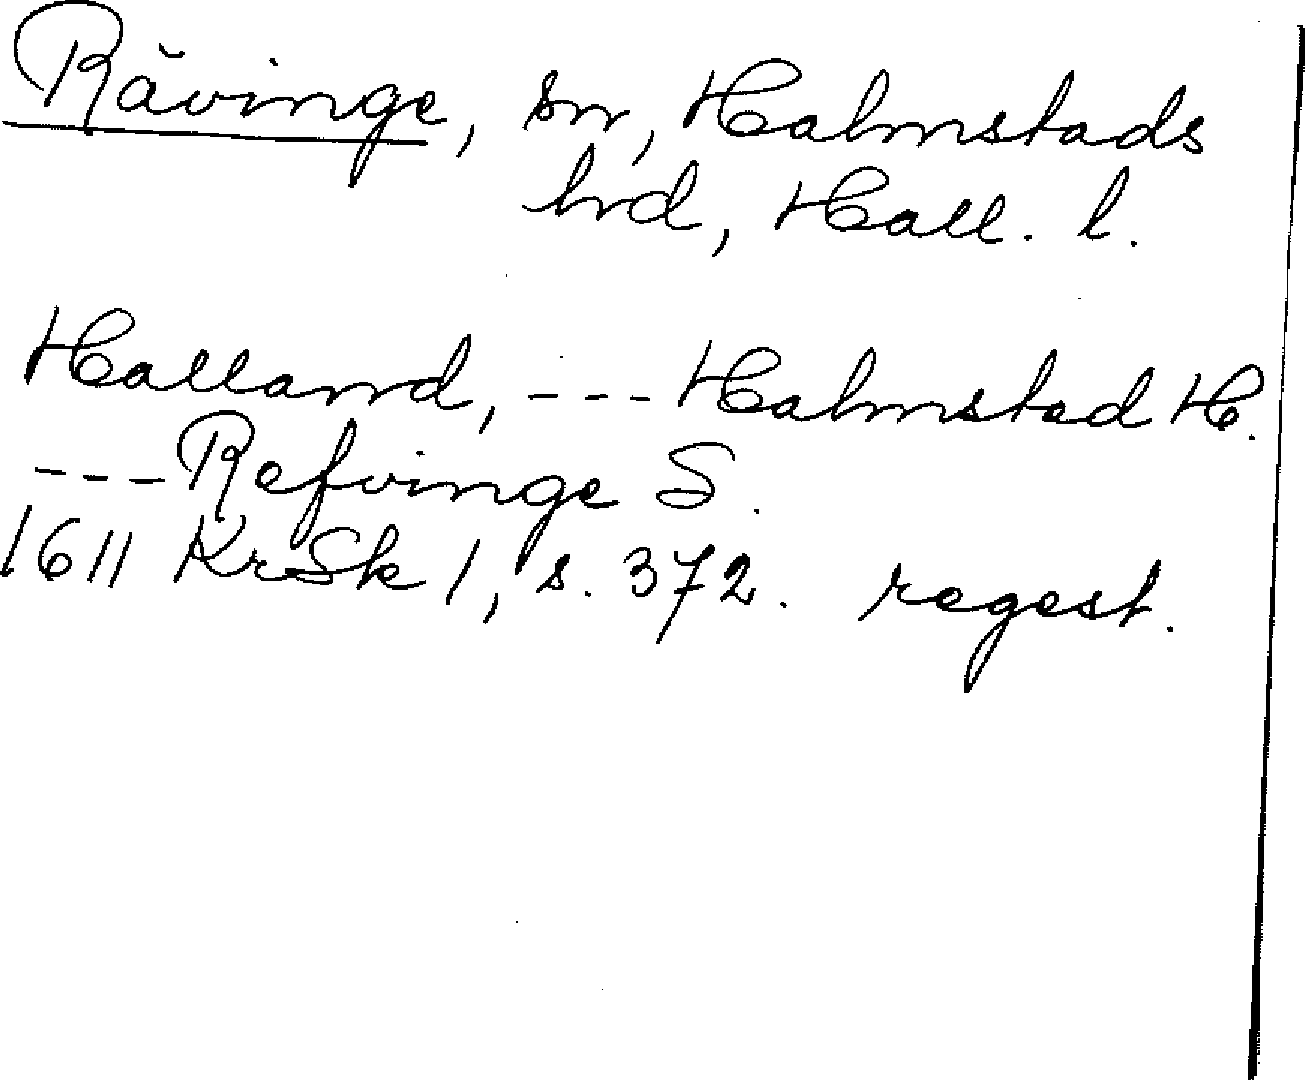 Rävinge, sn, Halmstads
hrd, Hall. l.
Halland, --- Halmstad H.
--- Refvinge S.
1611 KrSk 1, s. 372. regest.